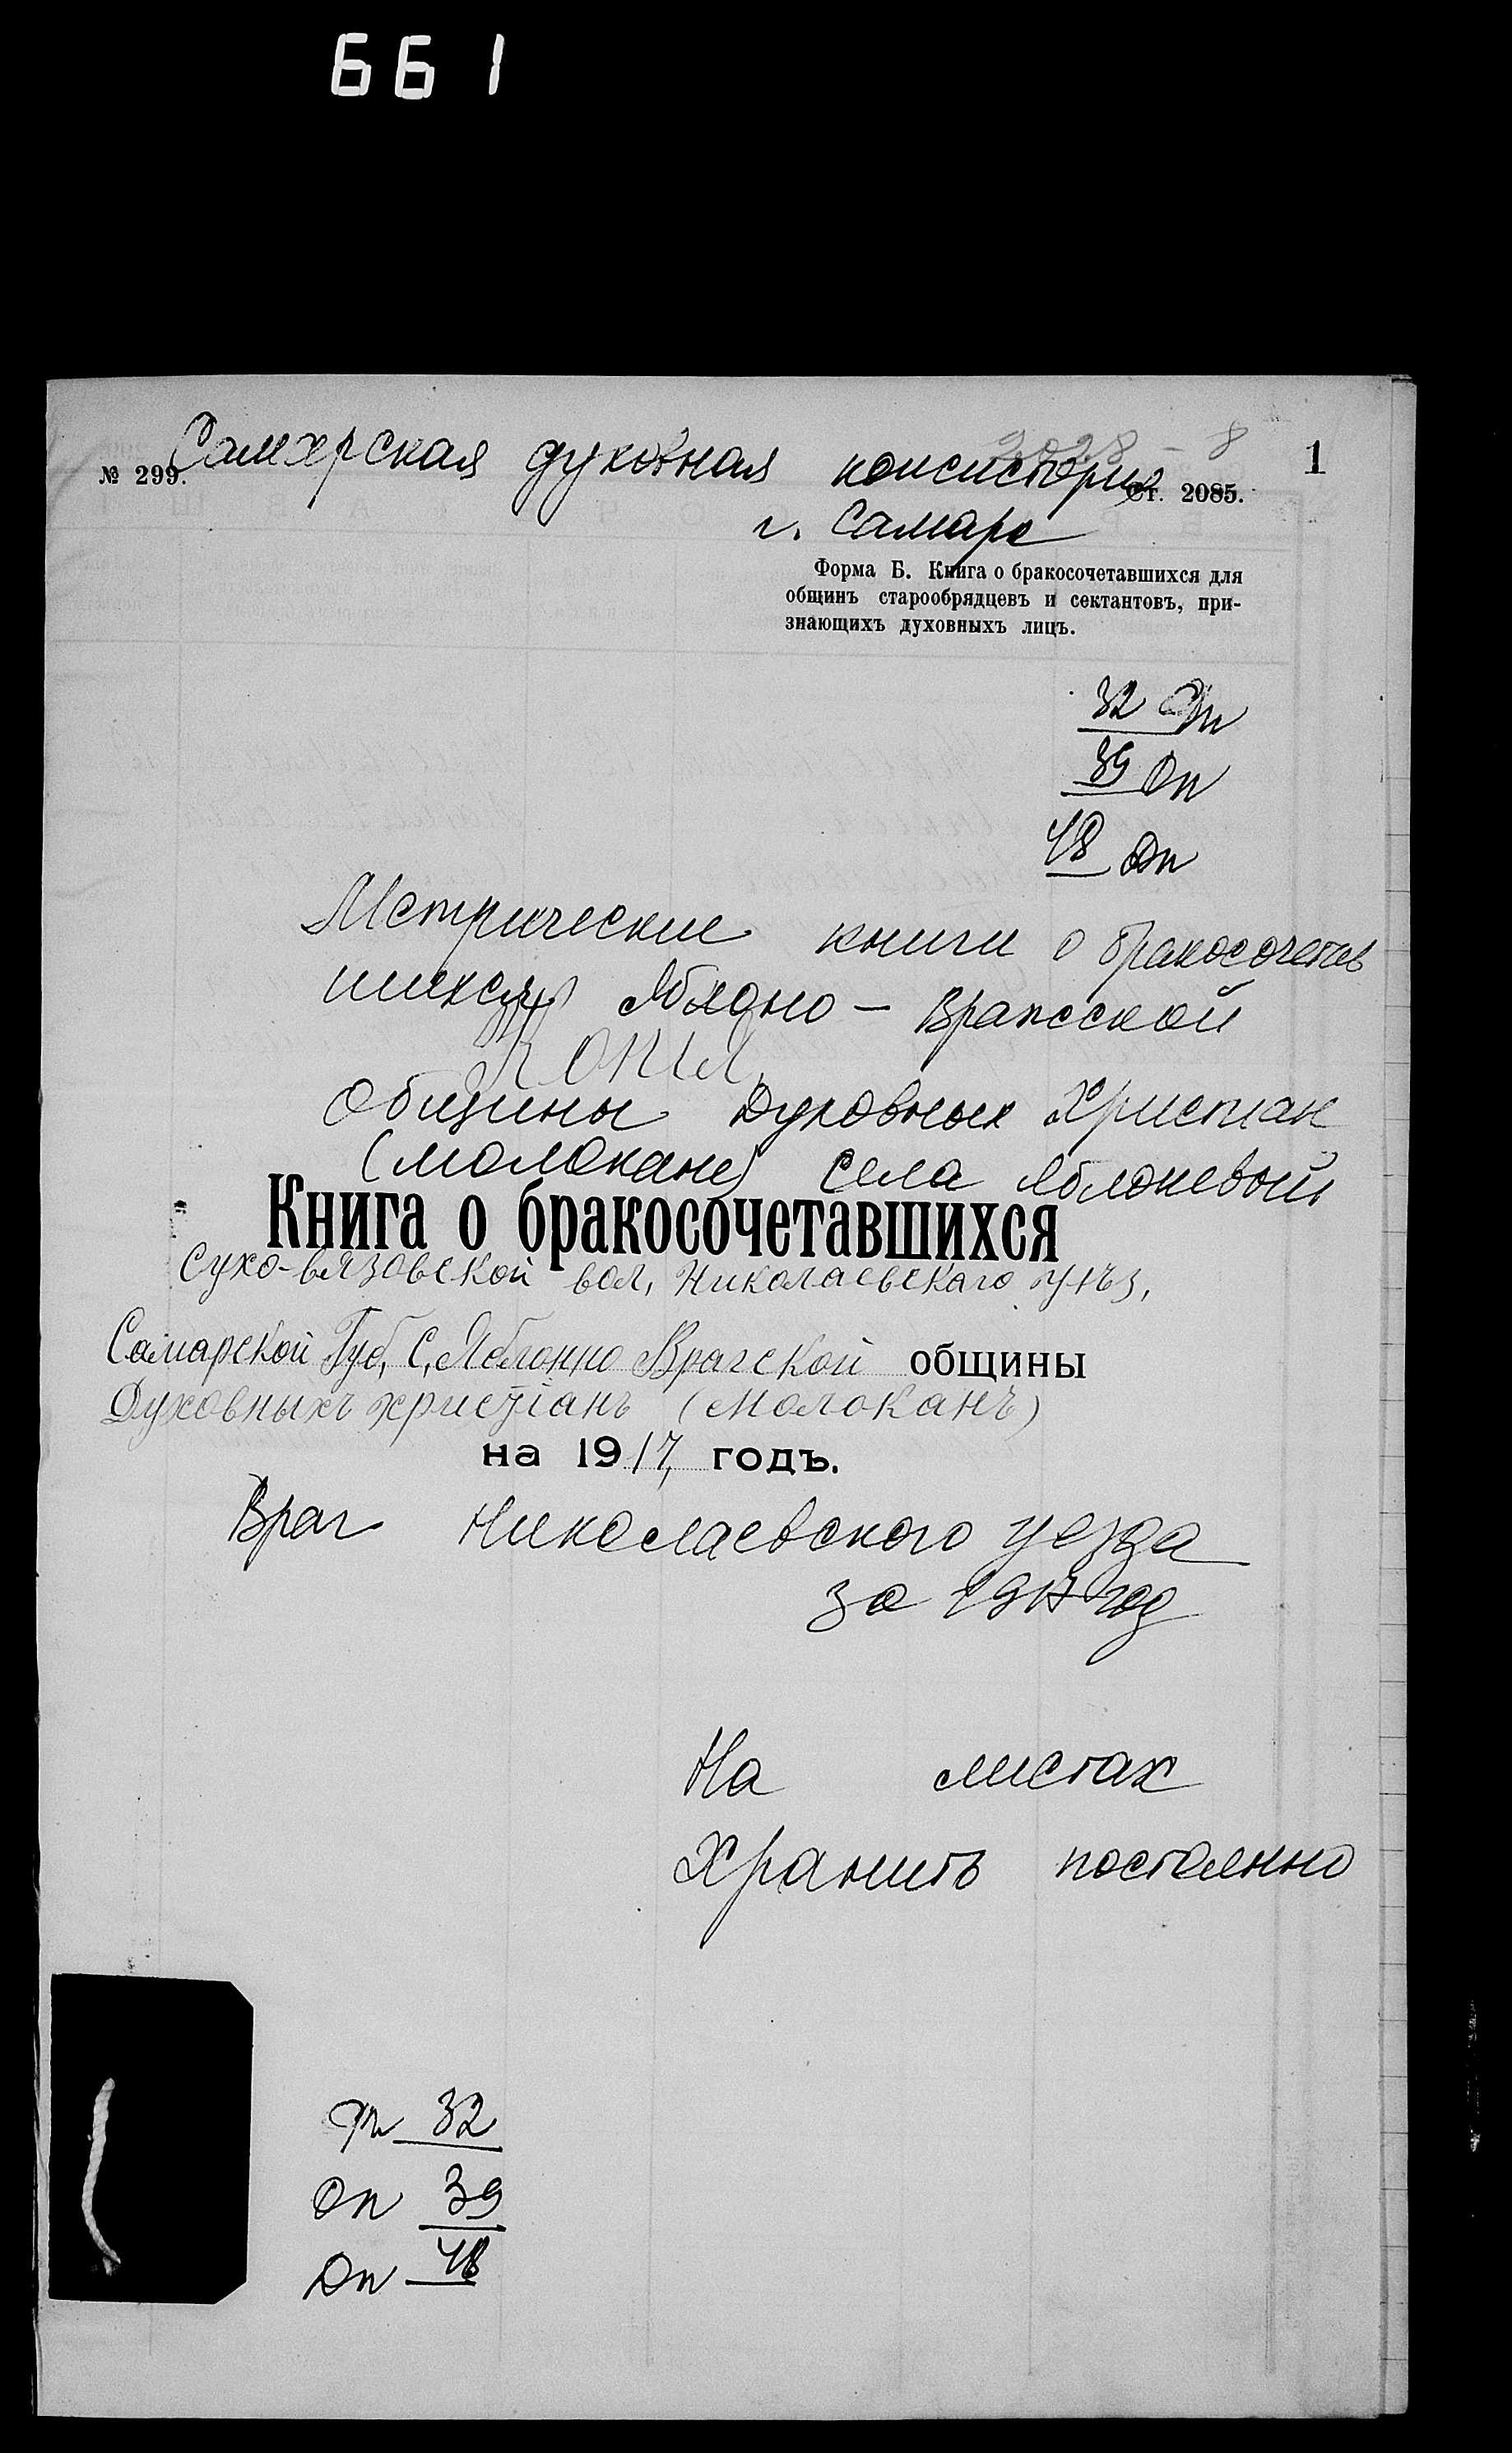 661
1
2028 - 8
Самарская духовная консистория
№ 299.
Ст. 2085.
г. Самара
Форма Б. Книга о бракосочетавшихся для
общинъ старообрядцевъ и сектантовъ, при-
знающихъ духовныхъ лицъ.
32 Фп
39 Оп
48 Дп
Метрические книги о бракосочетав
шихся Яблоно - Вражсской
Копия
Общины Духовных Христиан
(молокане) села Яблоневый
Книга о бракосочетавшихся
Сухо-вязовской вол, Николаевскаго уѣз,
Самарской Губ, С, Яблонно Врагской общины
Духовныхъ христіанъ (молоканъ)
на 1917, годъ.
Враг Николаевского уезда
за 1917 год
На листах
Хранить постоянно
32
Оп 39
Дп 48